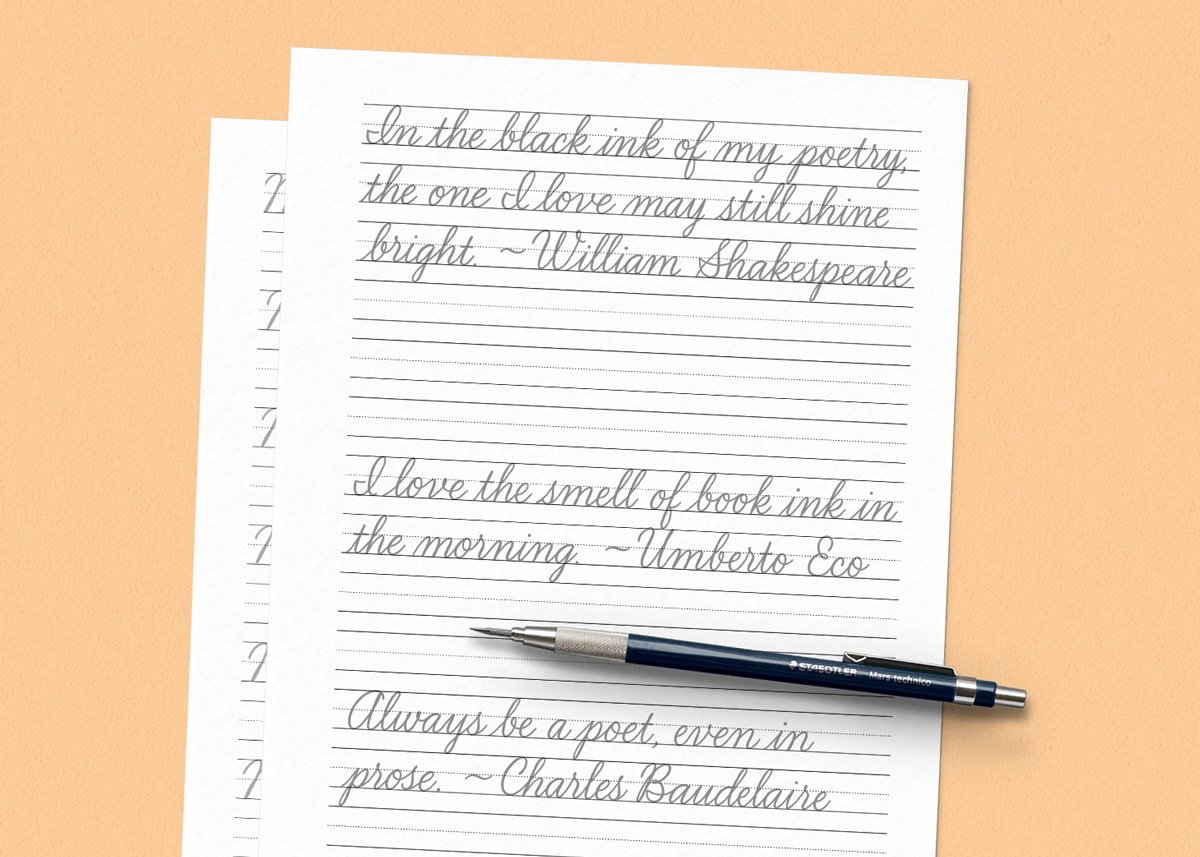 In the black ink of my poetry,
the one I love may still shine
bright. ~William Shakespeare
I love the smell of book ink in
the morning. ~Umberto Eco
STAEDTLER Mars technico
Always be a poet, even in
prose. ~Charles Baudelaire